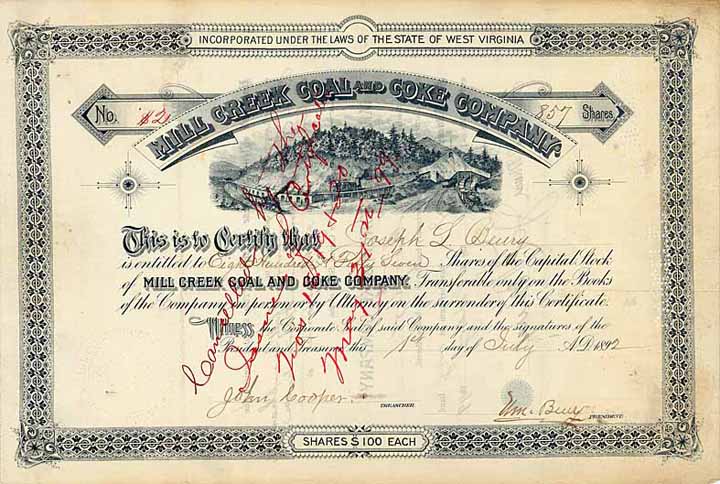 INCORPORATED UNDER THE LAWS OF THE STATE OF WEST VIRGINIA
No. 857 Shares
MILL CREEK COAL AND COKE COMPANY.
This is to Certify that Joseph L Beury
is entitled to Eight Hundred & Fifty Seven Shares of the Capital Stock
of MILL CREEK COAL AND COKE COMPANY. Transferable only on the Books
of the Company in person or by Attorney on the surrender of this Certificate.
Witness the Corporate Seal of said Company and the signatures of the
President and Treasurer this 1st day of July A.D. 1892
John Cooper. TREASURER. Wm. Beury PRESIDENT.
SHARES $100 EACH
Cancelled by the
issuance of Certificates
Nos 
May 21st